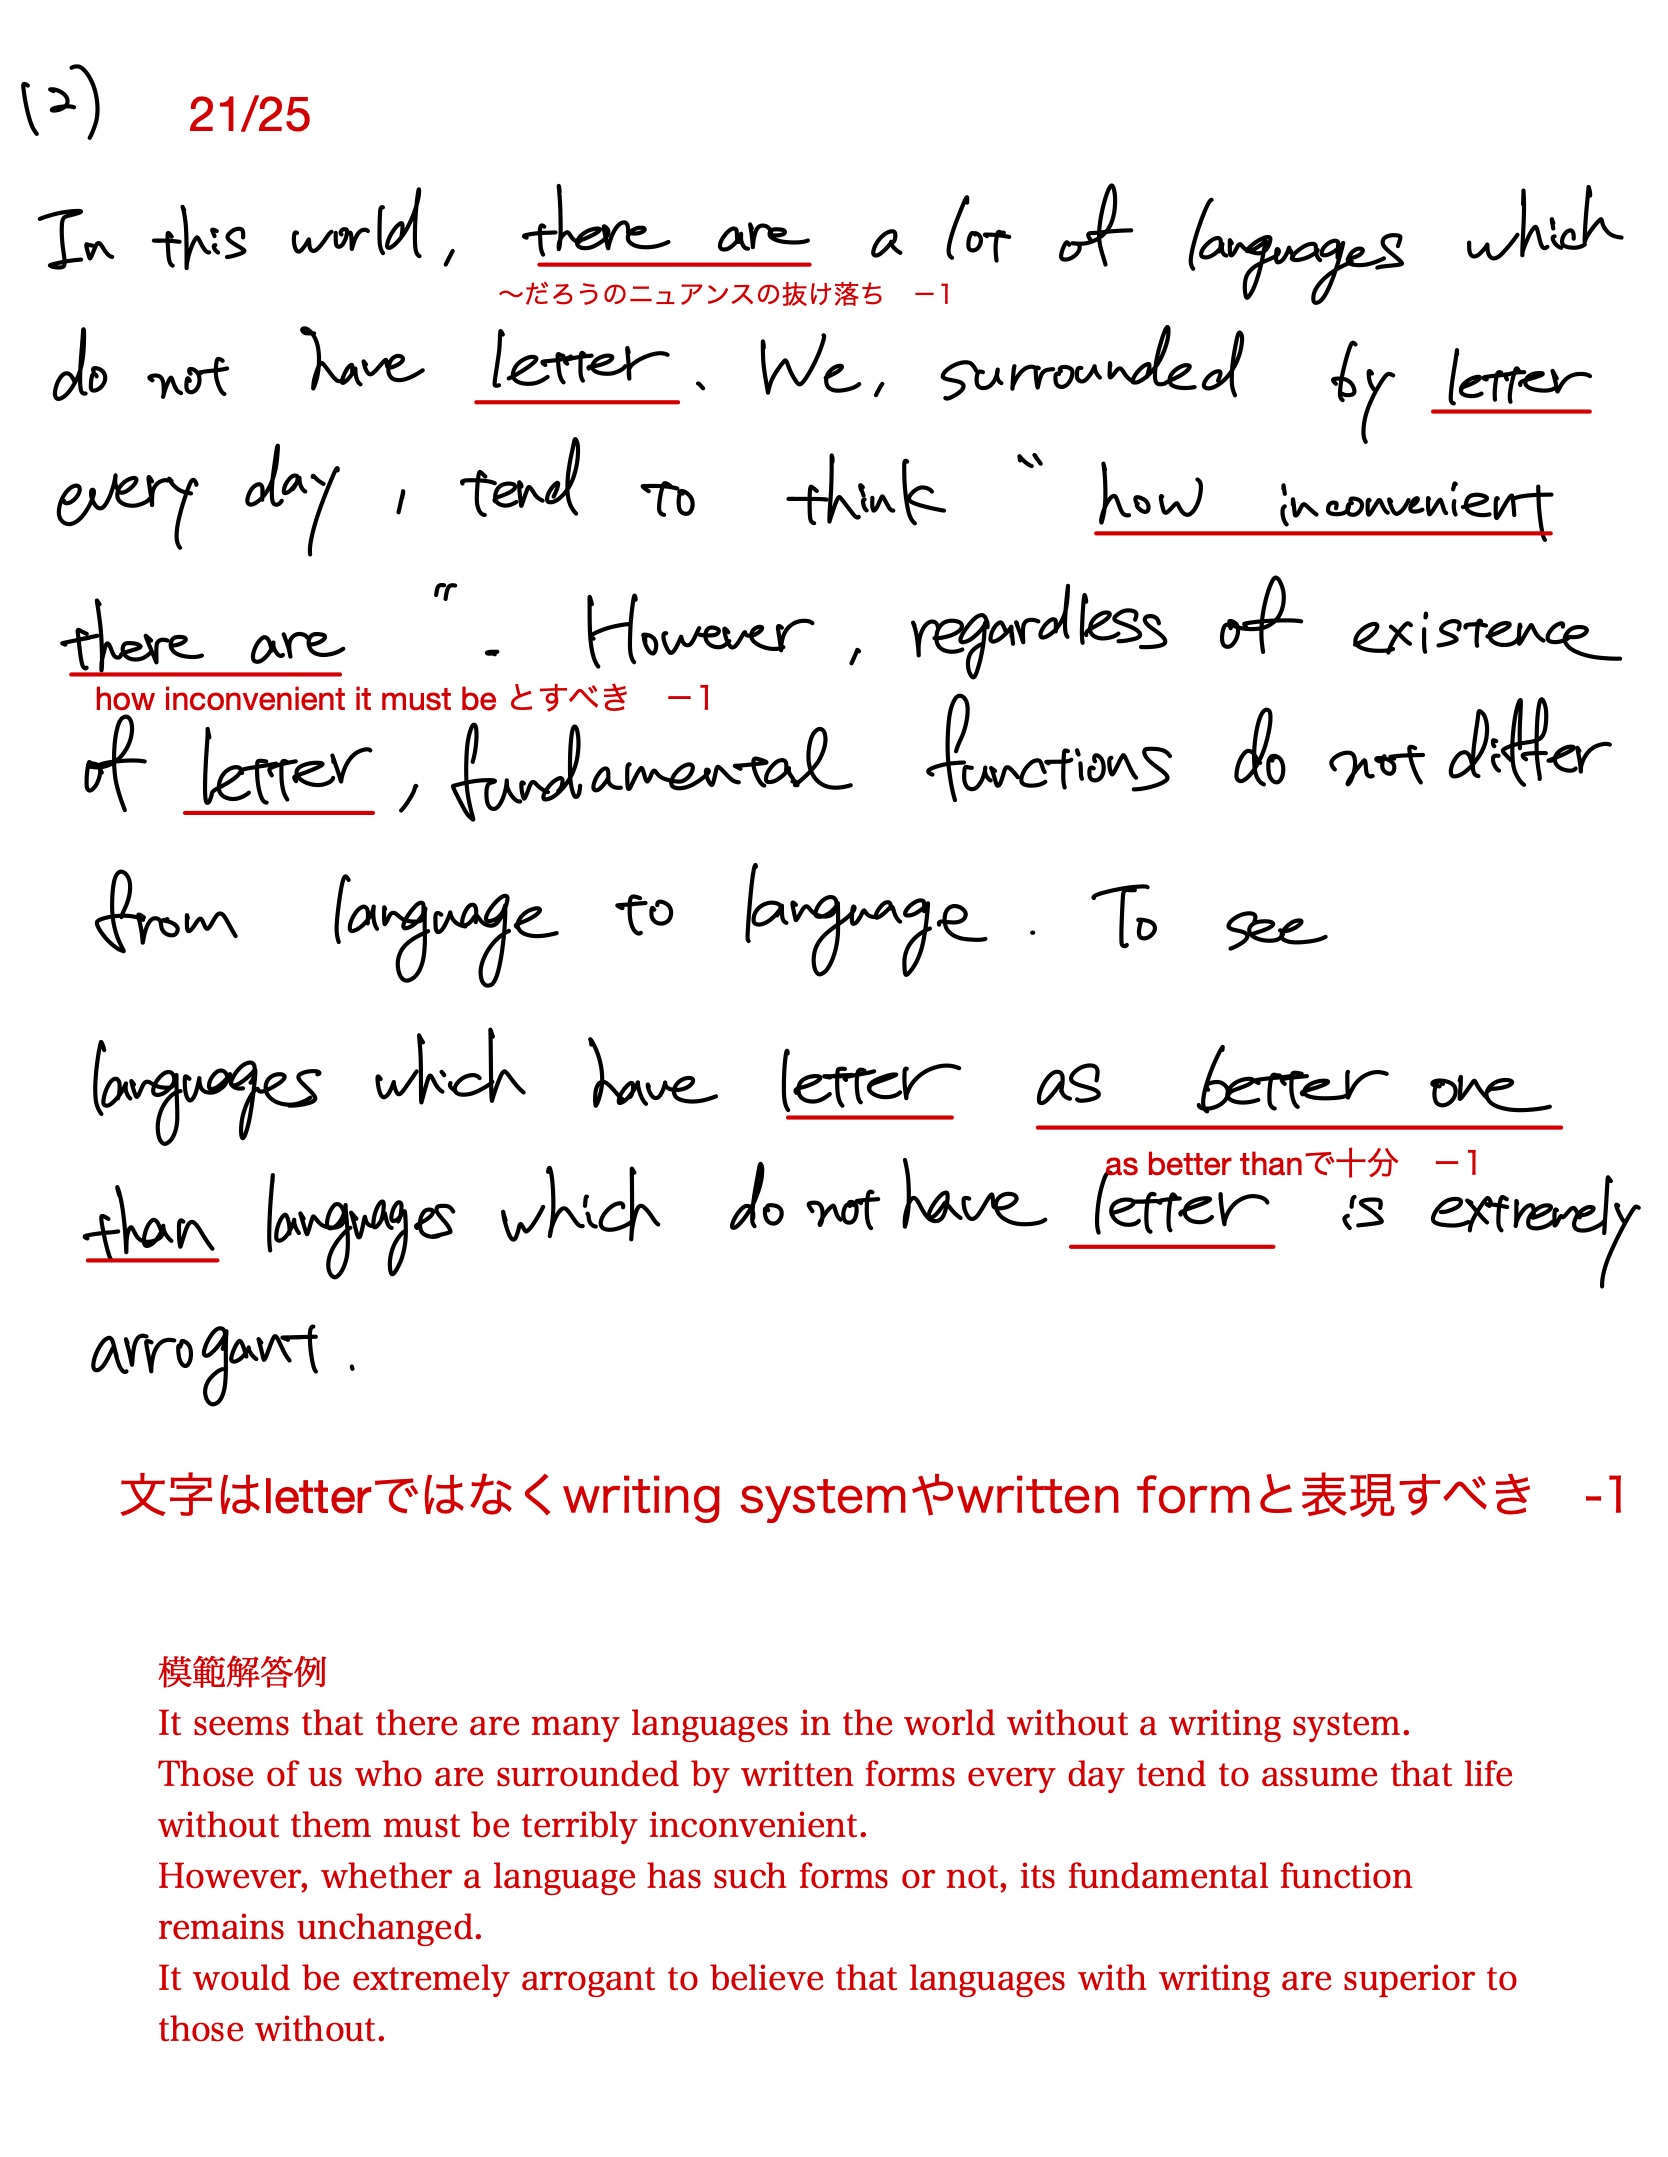 (2) 21/25
In this world, there are a lot of languages which
〜だろうのニュアンスの抜け落ち －1
do not have letter. We, surrounded by letter
every day, tend to think "how inconvenient
there are". However, regardless of existence
how inconvenient it must be とすべき －1
of letter, fundamental functions do not differ
from language to language. To see
languages which have letter as better one
as better thanで十分 －1
than languages which do not have letter is extremely
arrogant.
文字はletterではなくwriting systemやwritten formと表現すべき -1
模範解答例
It seems that there are many languages in the world without a writing system.
Those of us who are surrounded by written forms every day tend to assume that life
without them must be terribly inconvenient.
However, whether a language has such forms or not, its fundamental function
remains unchanged.
It would be extremely arrogant to believe that languages with writing are superior to
those without.